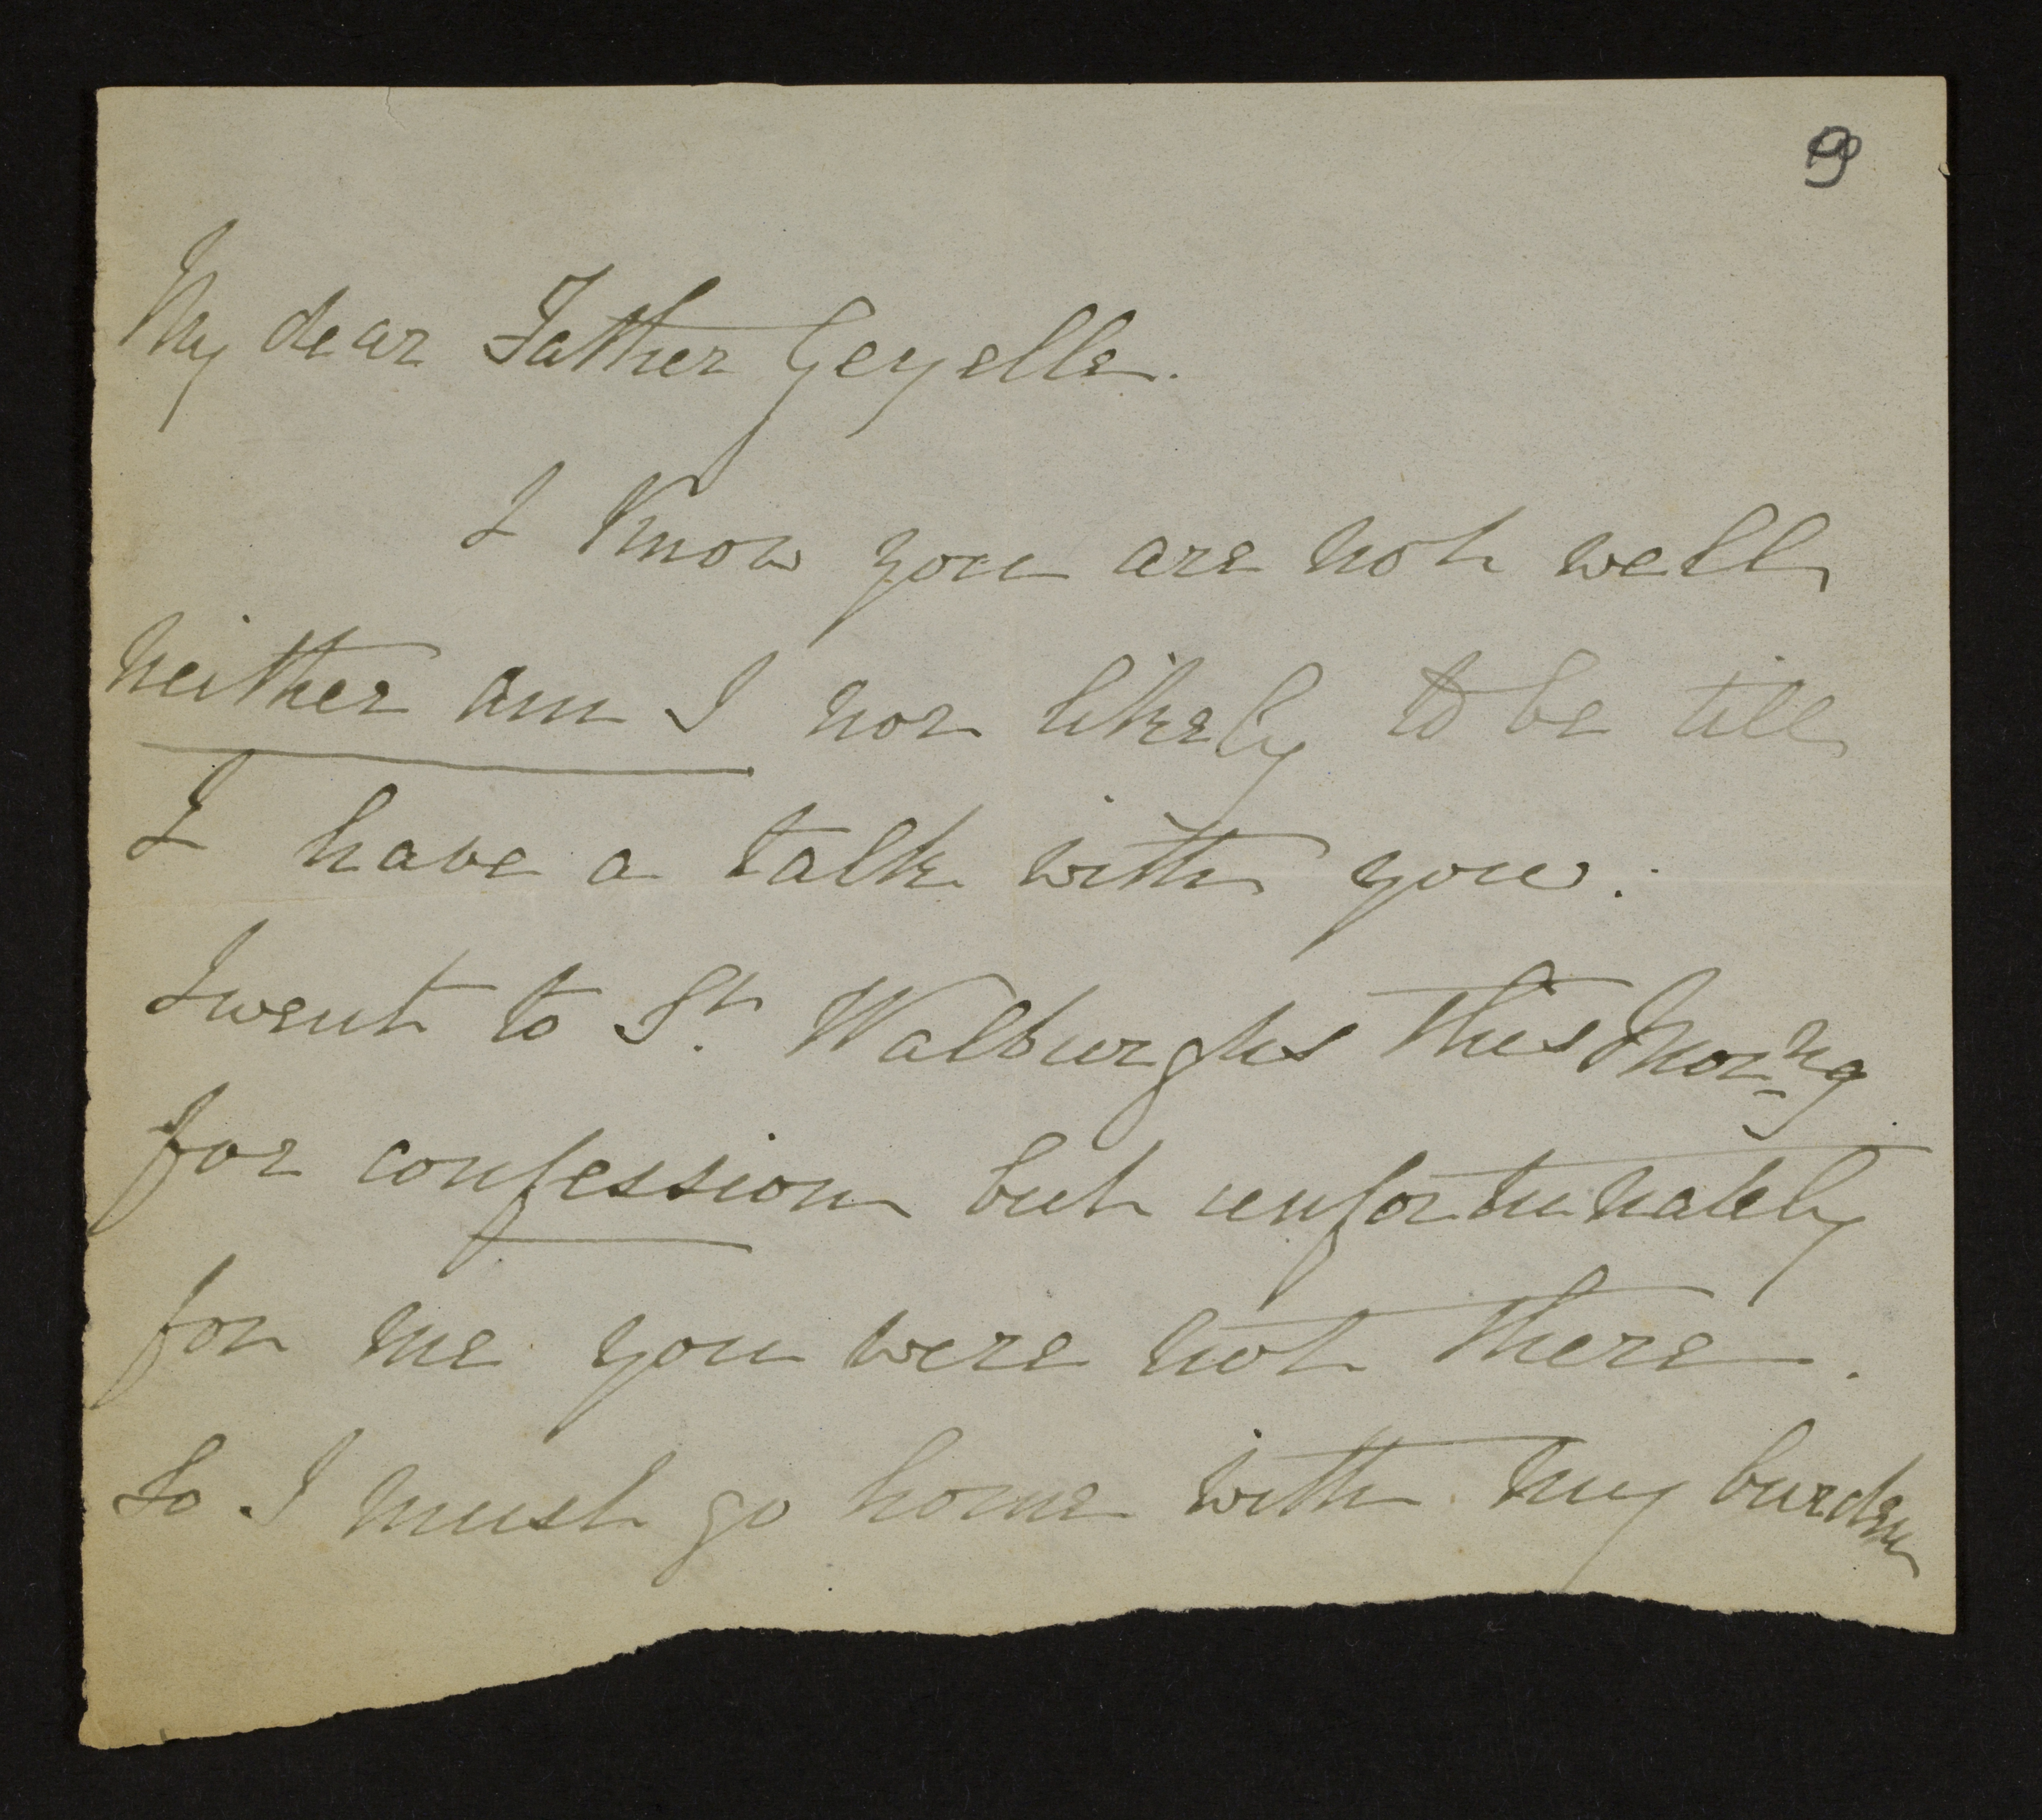 9
My dear Father Geyelle.
I Know you are not well
neither am I nor likely to be till
I have a talk with you.
I went to St. Walburghs this Morng
for confession but unfortunately
for me you were not there.
So I must go home with my burden